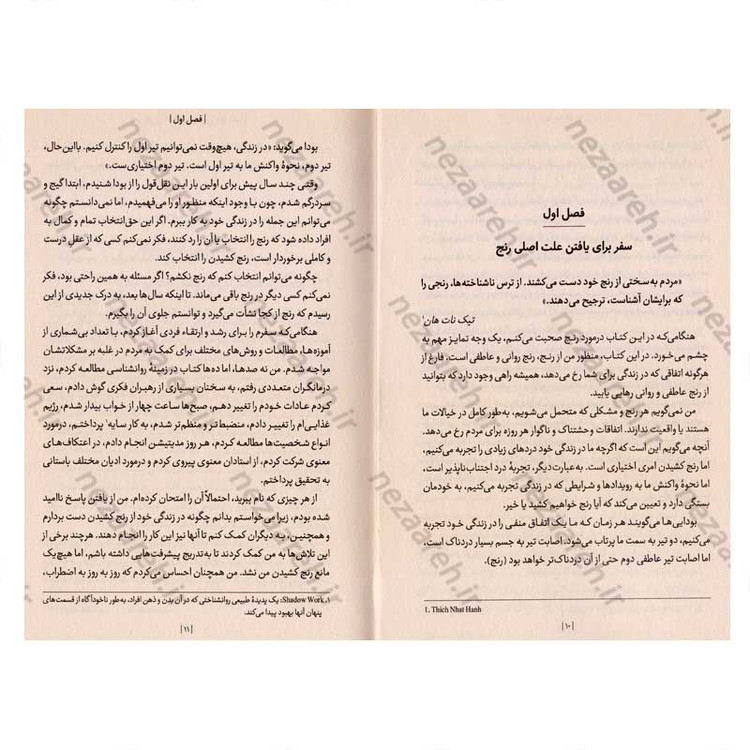 فصل اول
سفر برای یافتن علت اصلی رنج
«مردم به‌سختی از رنج خود دست می‌کشند. از ترس ناشناخته‌ها، رنجی را
که برایشان آشناست، ترجیح می‌دهند.»
تیک نات هان¹
هنگامی‌که در این کتاب درمورد رنج صحبت می‌کنم، یک وجه تمایز مهم به
چشم می‌خورد. در این کتاب، منظور من از رنج، رنج روانی و عاطفی است. فارغ از
هرگونه اتفاقی که در زندگی برای شما رخ می‌دهد، همیشه راهی وجود دارد که بتوانید
از رنج عاطفی و روانی رهایی یابید.
من نمی‌گویم هر رنج و مشکلی که متحمل می‌شویم، به‌طور کامل در خیالات ما
هستند یا واقعیت ندارند. اتفاقات وحشتناک و ناگوار هر روزه برای مردم رخ می‌دهد.
آنچه می‌گویم این است که اگرچه ما در زندگی خود دردهای زیادی را تجربه می‌کنیم،
اما رنج کشیدن امری اختیاری است. به‌عبارت دیگر، تجربهٔ درد اجتناب‌ناپذیر است،
اما نحوهٔ واکنش ما به رویدادها و شرایطی که در زندگی تجربه می‌کنیم، به خودمان
بستگی دارد و تعیین می‌کند که آیا رنج خواهیم کشید یا خیر.
بودایی‌ها می‌گویند هر زمان که ما یک اتفاق منفی را در زندگی خود تجربه
می‌کنیم، دو تیر به سمت ما پرتاب می‌شود. اصابت تیر به جسم بسیار دردناک است،
اما اصابت تیر عاطفی دوم حتی از آن دردناک‌تر خواهد بود (رنج).
1. Thich Nhat Hanh
|۱۰|
| فصل اول |
بودا می‌گوید: «در زندگی، هیچ‌وقت نمی‌توانیم تیر اول را کنترل کنیم. بااین‌حال،
تیر دوم، نحوهٔ واکنش ما به تیر اول است. تیر دوم اختیاری‌ست.»
وقتی چند سال پیش برای اولین بار این نقل‌قول را از بودا شنیدم، ابتدا گیج و
سردرگم شدم، چون با وجود اینکه منظور او را می‌فهمیدم، اما نمی‌دانستم چگونه
می‌توانم این جمله را در زندگی خود به کار ببرم. اگر این حق انتخاب تمام و کمال به
افراد داده شود که رنج را انتخاب یا آن را رد کنند، فکر نمی‌کنم کسی که از عقل درست
و کاملی برخوردار است، رنج کشیدن را انتخاب کند.
چگونه می‌توانم انتخاب کنم که رنج نکشم؟ اگر مسئله به همین راحتی بود، فکر
نمی‌کنم کسی دیگر در رنج باقی می‌ماند. تا اینکه سال‌ها بعد، به درک جدیدی از این
رسیدم که رنج از کجا نشأت می‌گیرد و توانستم جلوی آن را بگیرم.
هنگامی‌که سفرم را برای رشد و ارتقاء فردی آغاز کردم، با تعداد بی‌شماری از
آموزه‌ها، مطالعات و روش‌های مختلف برای کمک به مردم در غلبه بر مشکلاتشان
مواجه شدم. من نه صدها، اما ده‌ها کتاب در زمینهٔ روانشناسی مطالعه کردم، نزد
درمانگران متعددی رفتم، به سخنان بسیاری از رهبران فکری گوش دادم، سعی
کردم عادات خودم را تغییر دهم، صبح‌ها ساعت چهار از خواب بیدار شدم، رژیم
غذایی‌ام را تغییر دادم، منضبط‌تر و منظم‌تر شدم، به کار سایه¹ پرداختم، درمورد
انواع شخصیت‌ها مطالعه کردم، هر روز مدیتیشن انجام دادم، در اعتکاف‌های
معنوی شرکت کردم، از استادان معنوی پیروی کردم و درمورد ادیان مختلف باستانی
به تحقیق پرداختم.
از هر چیزی که نام ببرید، احتمالاً آن را امتحان کرده‌ام. من از یافتن پاسخ ناامید
شده بودم، زیرا می‌خواستم بدانم چگونه در زندگی خود از رنج کشیدن دست بردارم
و همچنین، به دیگران کمک کنم تا آنها نیز این کار را انجام دهند. هرچند برخی از
این تلاش‌ها به من کمک کردند تا به‌تدریج پیشرفت‌هایی داشته باشم، اما هیچ‌یک
مانع رنج کشیدن من نشد. من همچنان احساس می‌کردم که روز به روز به اضطراب،
۱. Shadow Work: یک پدیدهٔ طبیعی روانشناختی که در آن بدن و ذهن افراد، به‌طور ناخودآگاه از قسمت‌های
پنهان آنها بهبود پیدا می‌کند.
|۱۱|
nezaareh.ir